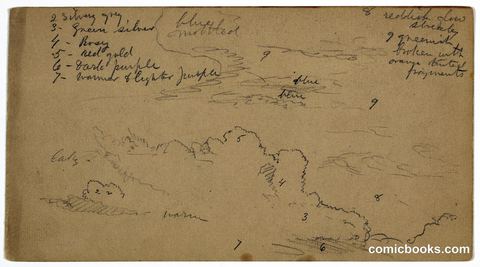 2 Silvery grey
3 - Green silver
4 - Rosy
5 - red gold
6 - Dark purple
7 - warmer & lighter purple
blue
mottled
8 reddish glow
streaky
9 greenish
broken with
orange tinted
fragments
9
blue
blue
9
5
4
2
8
3
warm
7
6
comicbooks.com